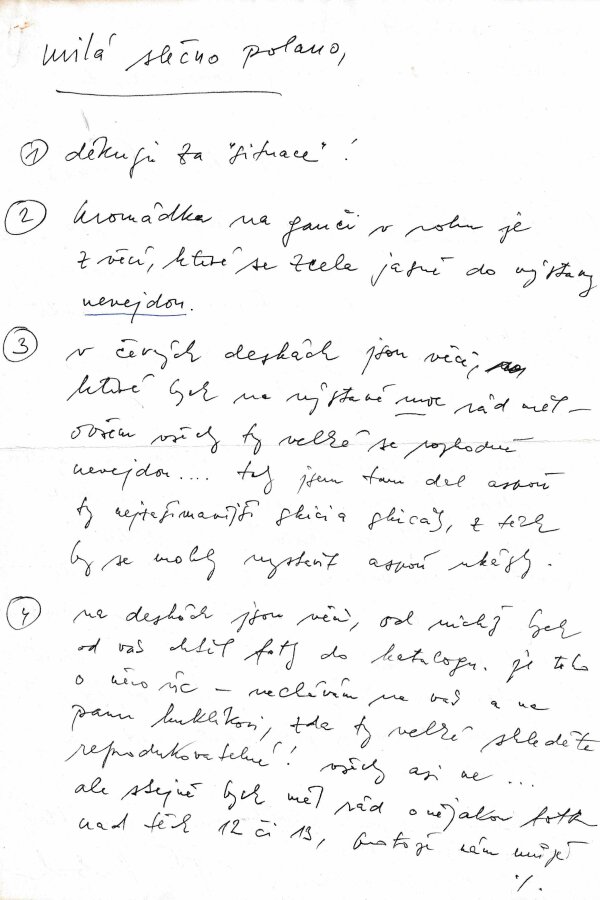 milá slečno polano,
① děkuji za "situace"!
② hromádka na gauči v rohu je
z věcí, které se zcela jasně do výstavy
nevejdou.
③ v černých deskách jsou věci,
které bych na výstavě moc rád měl –
ovšem všechny ty velké se rozhodně
nevejdou.... tak jsem tam dal aspoň
ty nejzajímavější skici a skicáky, z těch
by se mohly vystavit aspoň ukázky.
④ na deskách jsou věci, od nichž bych
od vás chtěl fotky do katalogu. je toho
o něco víc – nechávám na vás a na
panu kuklíkovi, zda ty velké shledáte
reprodukovatelné! všechny asi ne ...
ale stejně bych měl rád o nějakou fotku
nad těch 12 či 13, protože nám
./.